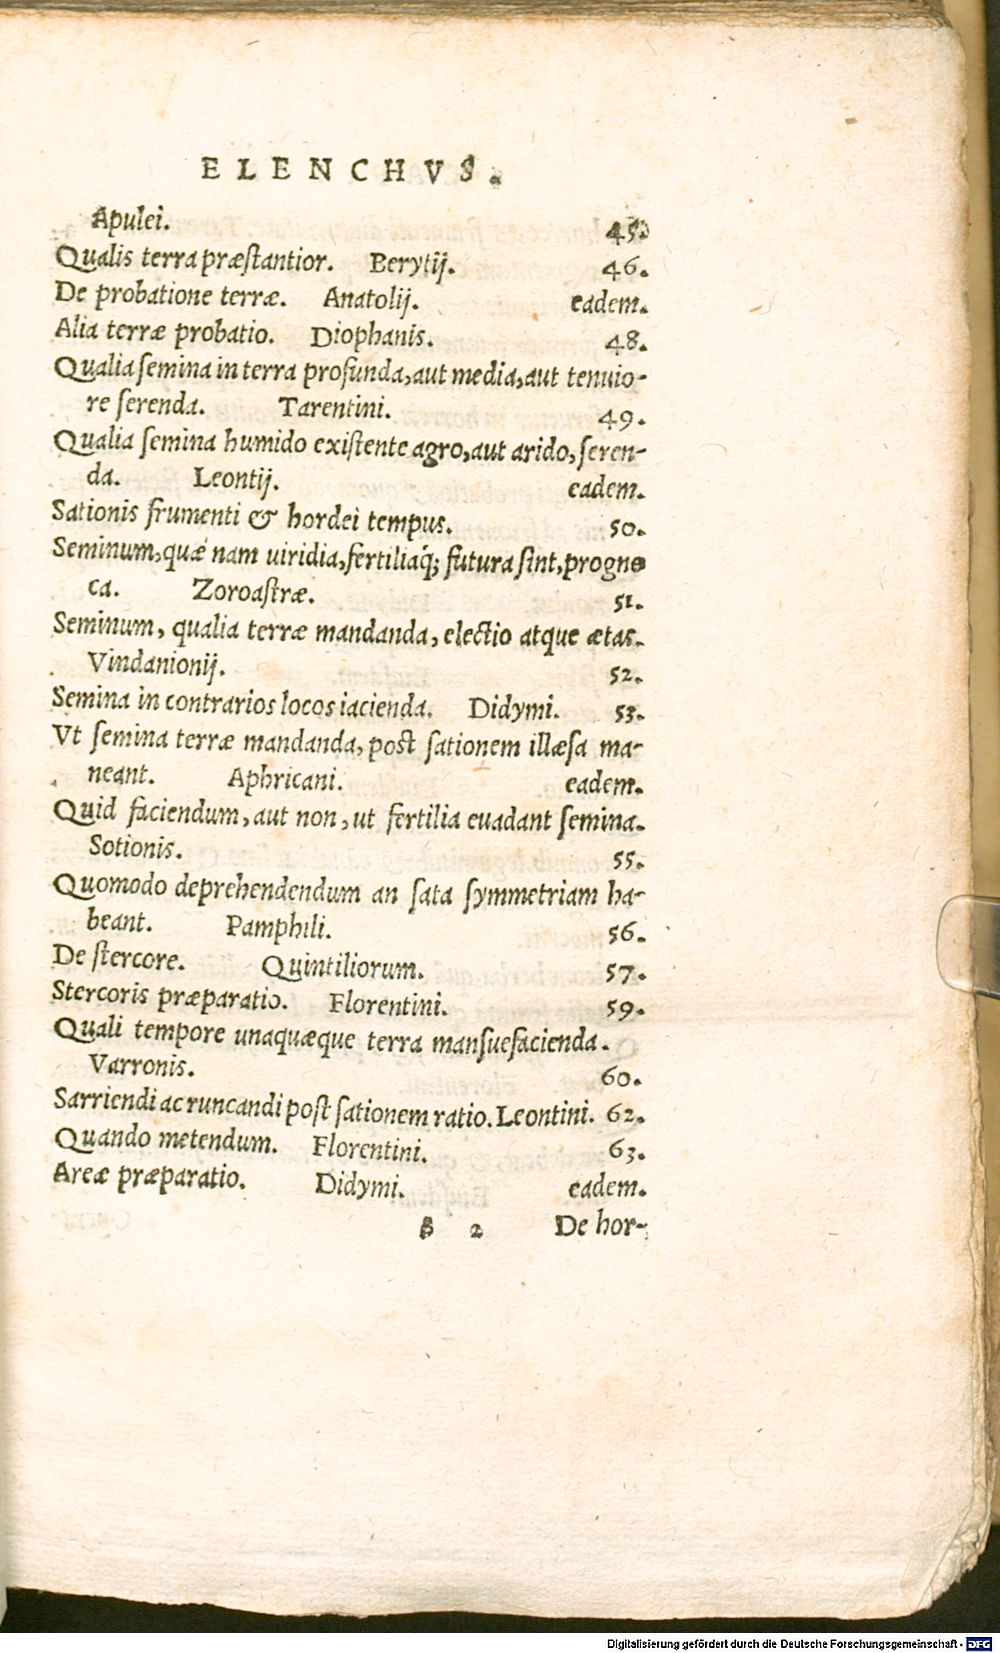 ELENCHVS.
Apulei. 45.
Qualis terra præstantior. Berytij. 46.
De probatione terræ. Anatolij. eadem.
Alia terræ probatio. Diophanis. 48.
Qualia semina in terra profunda, aut media, aut tenuio-
re serenda. Tarentini. 49.
Qualia semina humido existente agro, aut arido, seren-
da. Leontij. eadem.
Sationis frumenti & hordei tempus. 50.
Seminum, quæ nam uiridia, fertiliaq́; futura sint, progno
ca. Zoroastræ. 51.
Seminum, qualia terræ mandanda, electio atque ætas.
Vindanionij. 52.
Semina in contrarios locos iacienda. Didymi. 53.
Vt semina terræ mandanda, post sationem illæsa ma-
neant. Aphricani. eadem.
Quid faciendum, aut non, ut fertilia euadant semina.
Sotionis. 55.
Quomodo deprehendendum an sata symmetriam ha-
beant. Pamphili. 56.
De stercore. Quintiliorum. 57.
Stercoris præparatio. Florentini. 59.
Quali tempore unaquæque terra mansuefacienda.
Varronis. 60.
Sarriendi ac runcandi post sationem ratio. Leontini. 62.
Quando metendum. Florentini. 63.
Areæ præparatio. Didymi. eadem.
β 2 De hor-
Digitalisierung gefördert durch die Deutsche Forschungsgemeinschaft - DFG